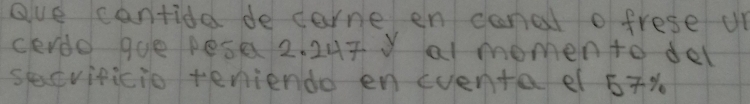 Que cantida de carne en canal o frese un
cerdo que pesa 2.247 y al momento del
sacrificio teniendo en cuenta el 57%